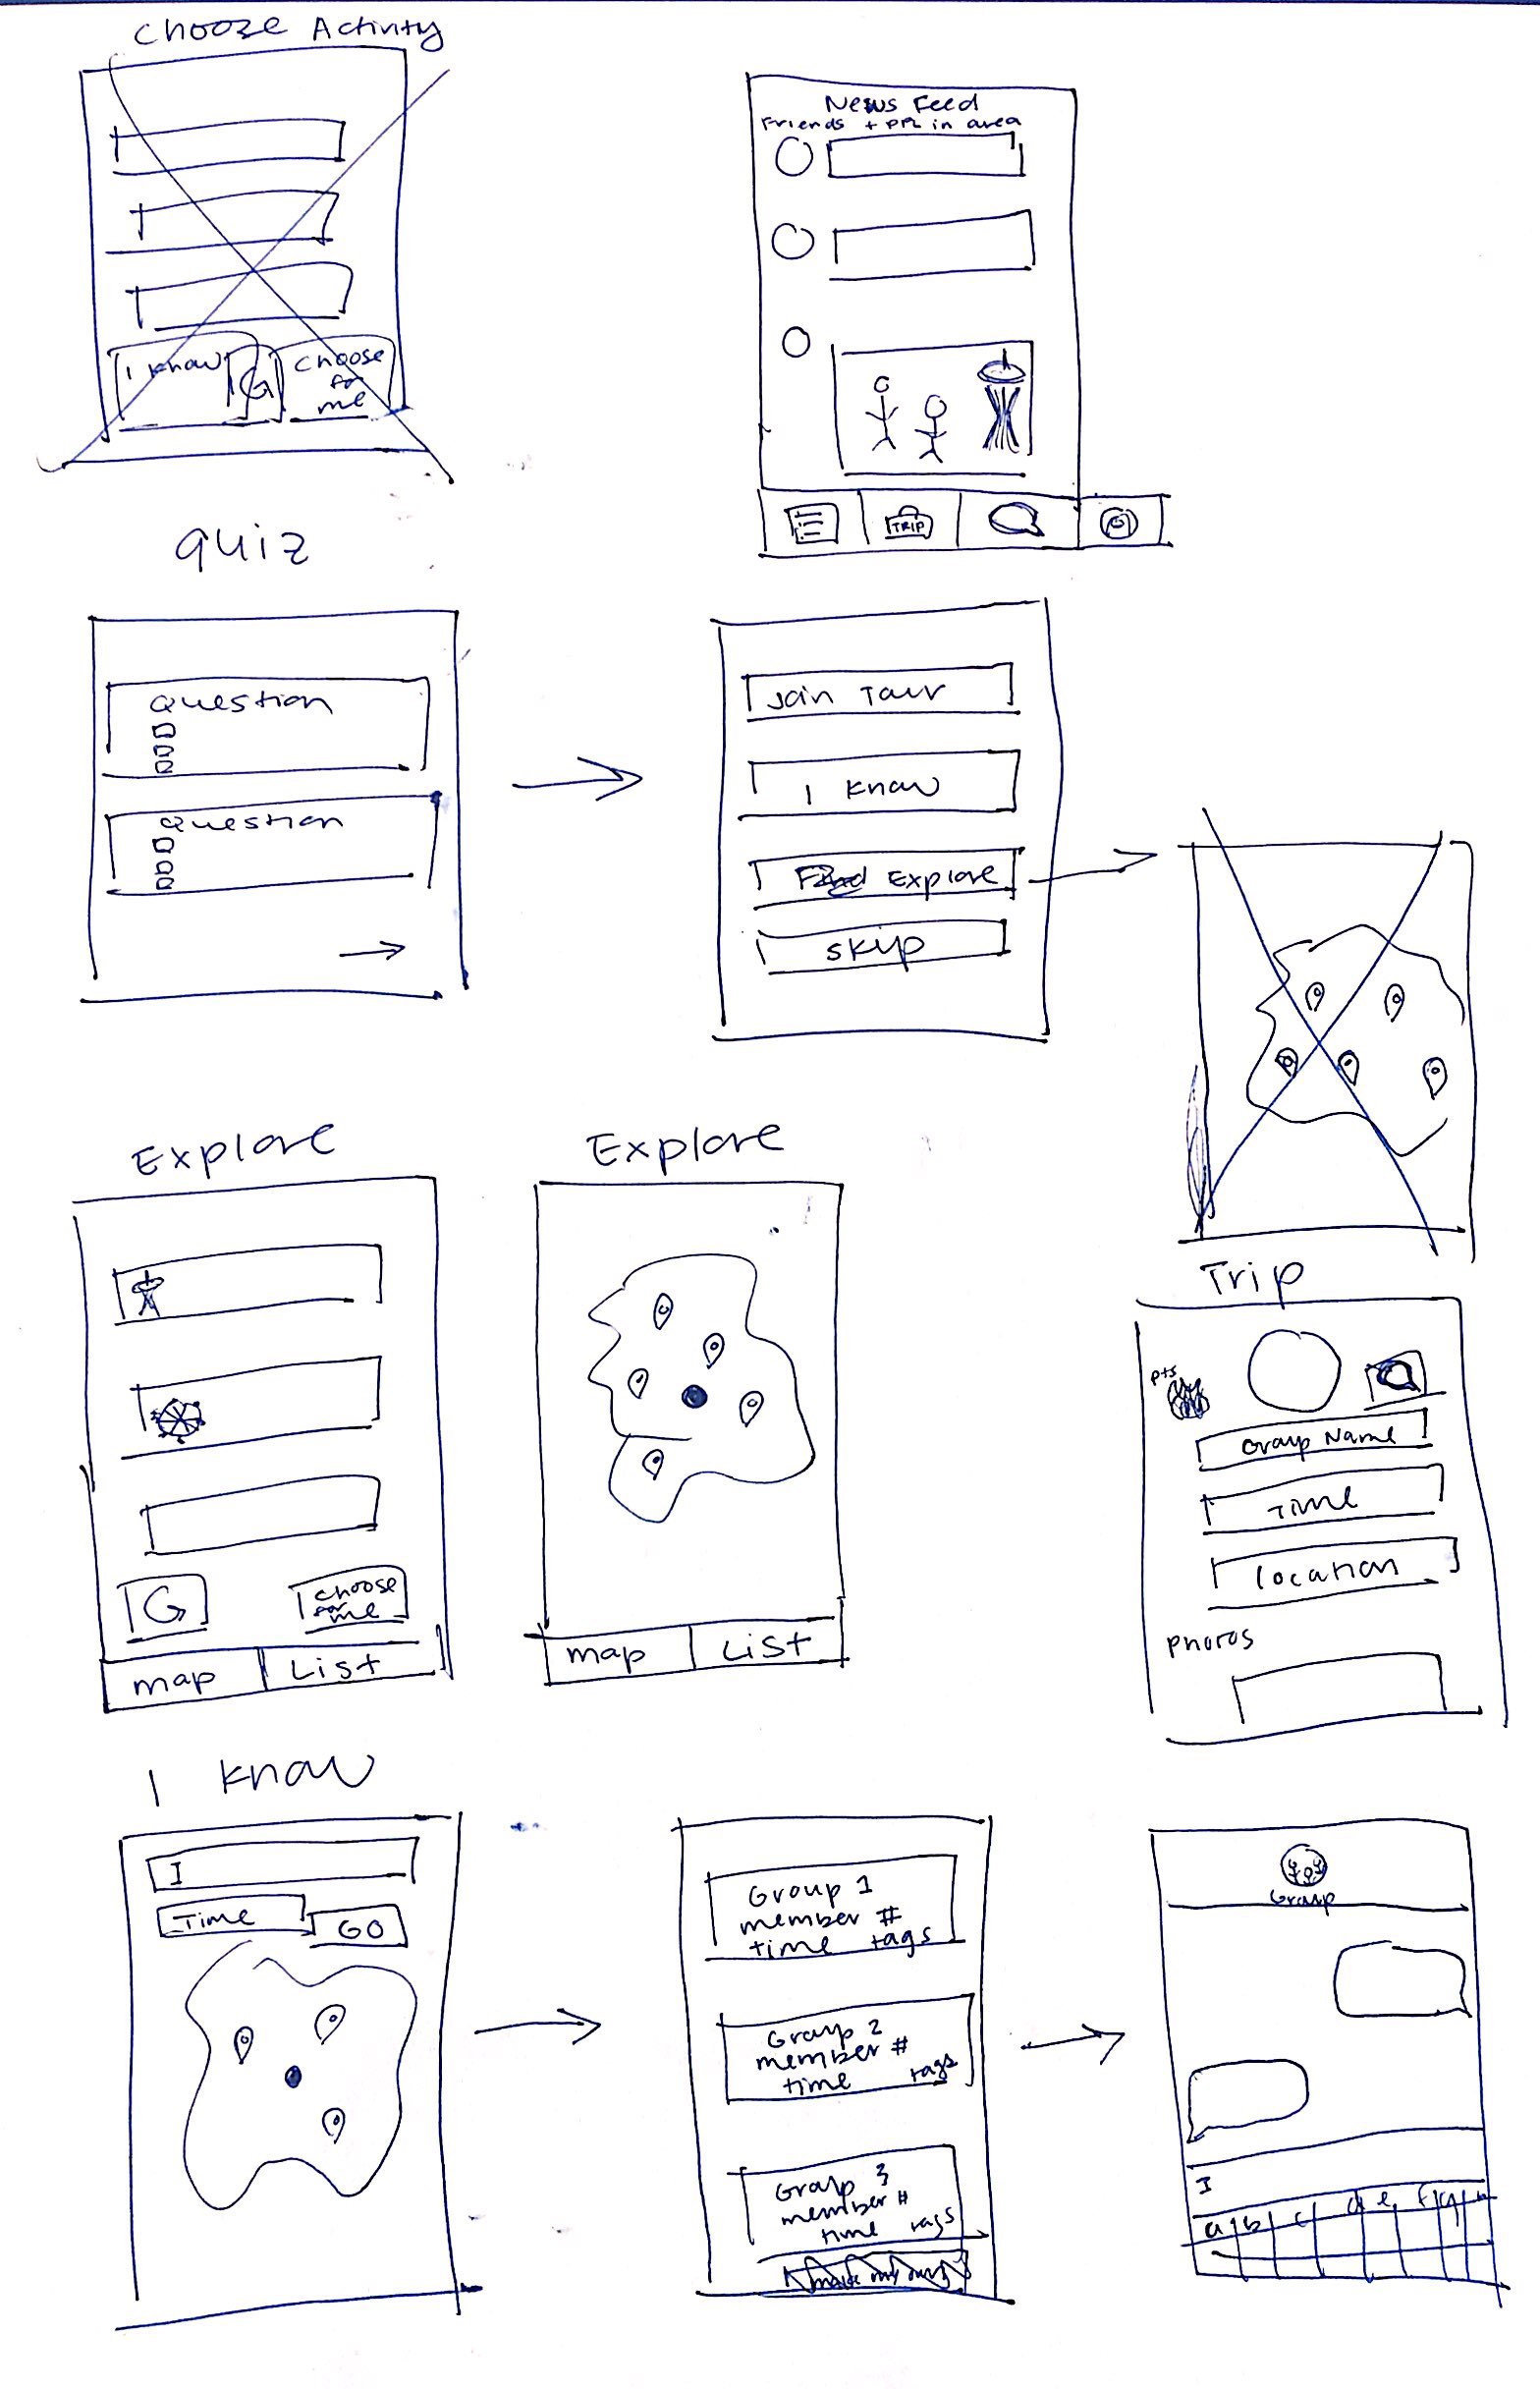 Choose Activity
I know
G
choose
for
me
News Feed
Friends + PPL in area
TRIP
Quiz
Question
Question
Join Tour
I know
Explore
skip
Explore
G
choose
for
me
map
List
Explore
map
List
Trip
pts
Group Name
Time
location
photos
I know
I
Time
GO
Group 1
member #
time tags
Group 2
member #
time tags
Group 3
member #
time tags
make my own
Group
I
a b c d e f g h